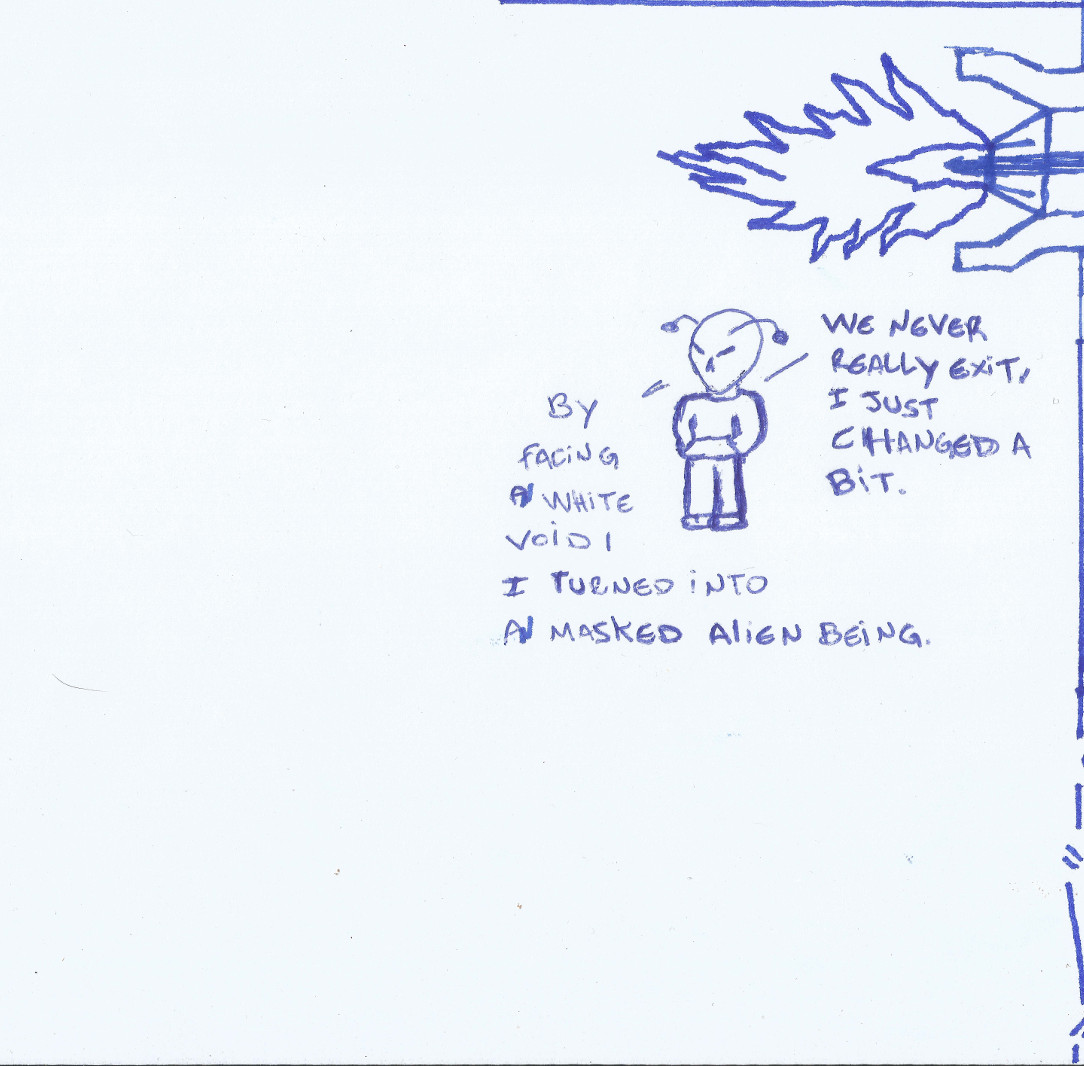 WE NEVER
REALLY EXIT,
I JUST
CHANGED A
BIT.
BY
FACING
A WHITE
VOID
I TURNED INTO
A MASKED ALIEN BEING.